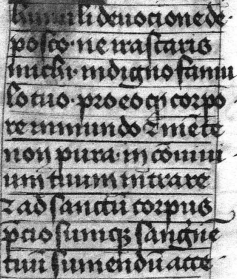 humili deuocione de
posco · ne irastaris
michi · indigno famu
lo tuo · pro eo qͥ corpo
re inmundo ⁊ mēte
non pura · in cōmui
uiū tuum intrare
⁊ ad sanctū corpus
p̄cio sumqꝫ sanguē
tuū sumendū acce